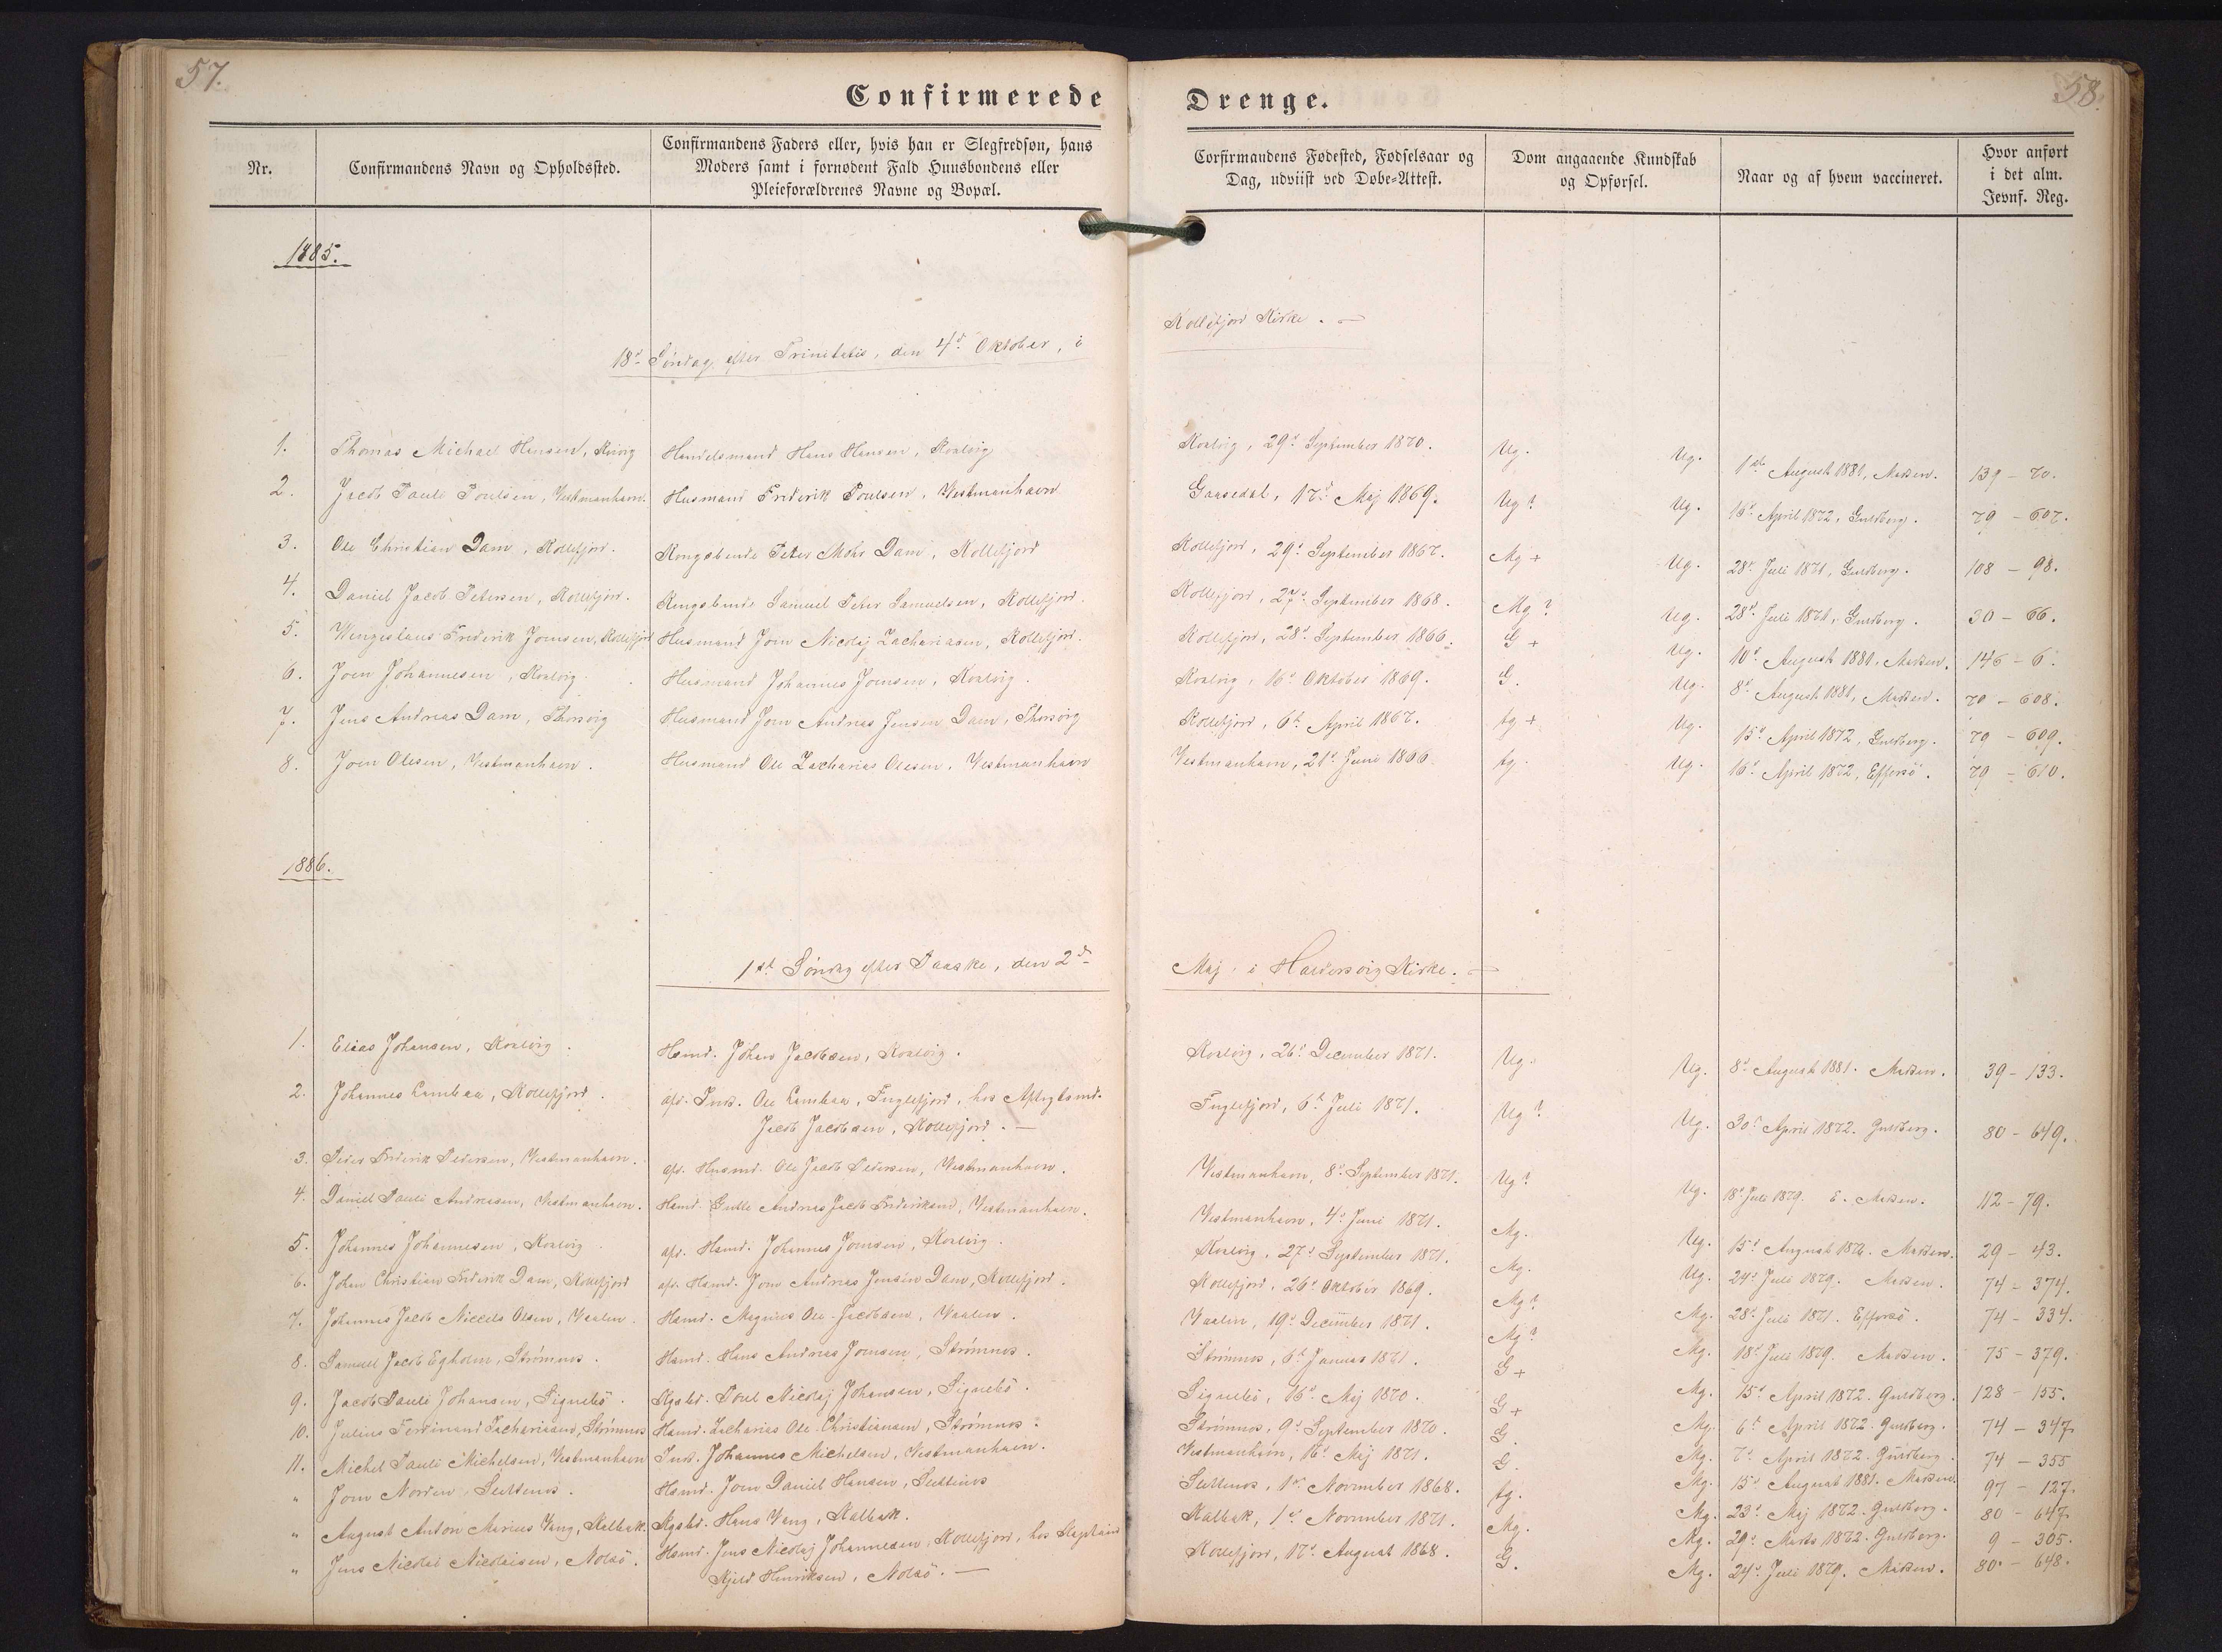 57.
58.
Confirmerede Drenge.
Nr.
Confirmandens Navn og Opholdssted.
Confirmandens Faders eller, hvis han er Slegfredsøn, hans
Moders samt i fornødent Fald Huusbondens eller
Pleieforældrenes Navne og Bopæl.
Corfirmandens Fødested, Fødselsaar og
Dag, udviist ved Døbe-Attest.
Dom angaaende Kundskab
og Opførsel.
Naar og af hvem vaccineret.
Hvor anført
i det alm.
Jevnf. Reg.
1885.
18d Søndag efter Trinitatis, den 4d Oktober, i Kollefjord Kirke.
1. Thomas Michael Hansen, Handelsmand Hans Hansen, Kvalvig Kvalvig, 29d September 1870. Ug. Ug. 1ste August 1881, Madsen. 139 - 70.
2. Jacob Pauli Poulsen, Vestmanhavn. Husmand Frederik Poulsen, Vestmanhavn Gaasedal, 17d Maj 1869. Ug? Ug. 16d April 1872, Guldberg. 79 - 607.
3. Ole Christian Dam, Kollefjord. Kongsbonde Peter Mohr Dam, Kollefjord Kollefjord, 29d September 1867. Mg + Ug. 28d Juli 1871, Guldberg. 108 - 98.
4. Daniel Jacob Petersen, Kollefjord. Kongsbonde Samuel Peter Samuelsen, Kollefjord. Kollefjord, 27d September 1868. Mg? Ug. 28d Juli 1871, Guldberg. 30 - 66.
5. Wengeslaus Frederik Joensen, Kollefjord Husmand Joen Nicolaj Zachariasen, Kollefjord. Kollefjord, 28d September 1866. G + Ug. 10d August 1881, Madsen. 146 - 6.
6. Joen Johannesen, Kvalvig. Husmand Johannes Joensen, Kvalvig. Kvalvig, 16d Oktober 1869. G. Ug. 8d August 1881, Madsen. 79 - 608.
7. Jens Andreas Dam, Thorsvig Husmand Joen Andreas Jensen Dam, Thorsvig Kollefjord, 6d April 1867. tg + Ug. 15d April 1872, Guldberg. 79 - 609.
8. Joen Olesen, Vestmanhavn. Husmand Ole Zacharias Olesen, Vestmanhavn Vestmanhavn, 21d Juni 1866. tg. Ug. 16d April 1872, Effersö. 79 - 610.
1886.
1st Søndag efter Paaske, den 2d Maj, i Haldersvig Kirke.
1. Elias Johansen, Kvalvig. Hsmd. Johan Jacobsen, Kvalvig. Kvalvig, 26d December 1871. Ug. Ug. 8d August 1881. Madsen. 39 - 133.
2. Johannes Lambaa, Kollefjord. afd. Inds. Ole Lambaa, Fuglefjord, hos Aftægtsmd. Fuglefjord, 6d Juli 1871. Ug? Ug. 30d April 1872. Guldberg. 80 - 649.
Jacob Jacobsen, Kollefjord.
3. Peder Frederik Pedersen, Vestmanhavn. afd. Husmd. Ole Jacob Pedersen, Vestmanhavn. Vestmanhavn, 8d September 1871. Ug? Ug. 18d Juli 1879. E. Madsen. 112 - 79.
4. Daniel Pauli Andreasen, Vestmanhavn. Hsmd. Gutte Andreas Jacob Frederiksen, Vestmanhavn. Vestmanhavn, 4d Juni 1871. Mg. Ug. 15d August 1876. Madsen. 29 - 43.
5. Johannes Johannesen, Kvalvig afd. Hsmd. Johannes Joensen, Kvalvig. Kvalvig, 27d September 1871. Mg. Ug. 24d Juli 1879. Madsen. 74 - 374.
6. Johan Christian Frederik Dam, Kollefjord afd. Hsmd. Joen Andreas Jensen Dam, Kollefjord. Kollefjord, 26d Oktober 1869. Mg? Mg. 28d Juli 1871. Effersö. 74 - 334.
7. Johannes Jacob Niccels Olsen, Vaalen. Hsmd. Magnus Ole Jacobsen, Vaalen. Vaalen, 19d December 1871. Mg? Mg. 18d Juli 1879. Madsen. 75 - 379.
8. Samuel Jacob Egholm, Strömnes. Hsmd. Hans Andreas Joensen, Strömnes. Strömnes, 6d Januar 1871. G + Mg. 15d April 1872. Guldberg. 128 - 155.
9. Jacob Pauli Johansen, Signebö. Kgsbd. Poul Nicolaj Johansen, Signebö. Signebö, 16d Maj 1870. G + Mg. 6d April 1872. Guldberg. 74 - 347.
10. Julius Ferdinand Zachariasen, Strömnes Hsmd. Zacharias Ole Christiansen, Strömnes. Strömnes, 9d September 1870. G. Mg. 7d April 1872. Guldberg. 74 - 355
11. Michel Pauli Michelsen, Vestmanhavn Inds. Johannes Michelsen, Vestmanhavn. Vestmanhavn, 16d Maj 1871. G. Mg. 15d August 1881. Madsen. 97 - 127.
" Joen Norden Selletnes. Hsmd. Joen Daniel Hansen, Selletnes Selletnes, 1d November 1868. tg. Mg. 23d Maj 1872. Guldberg. 80 - 647.
" August Anton Marius Vang, Kalbak. Kgsbd. Hans Vang, Kalbak. Kalbak, 1d November 1871. Mg. Mg. 29d Marts 1872. Guldberg. 9 - 305.
" Jens Nicolai Nicolaisen, Nolsö. Hsmd. Jens Nicolaj Johannesen, Kollefjord, hos Kaptain Kollefjord, 17d August 1868. G. Mg. 24d Juli 1879. Madsen. 80 - 648.
Kjeld Henriksen, Nolsö.